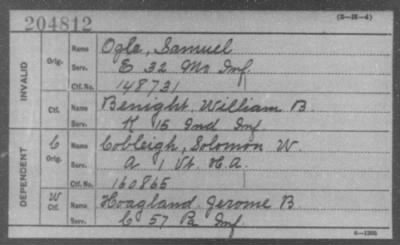 204812
(3-18-4)
INVALID
Orig.
Name Ogle, Samuel
Serv. E 32 Mo Inf.
Ctf. No. 148731
Ctf.
Name Benight, William B
Serv. K 15 Ind Inf
DEPENDENT
C Orig.
Name Cobleigh, Solomon W.
Serv. A 1 Vt. H.A.
Ctf. No. 160865
W Ctf.
Name Hoagland Jerome B
Serv. C 57 Pa Inf.